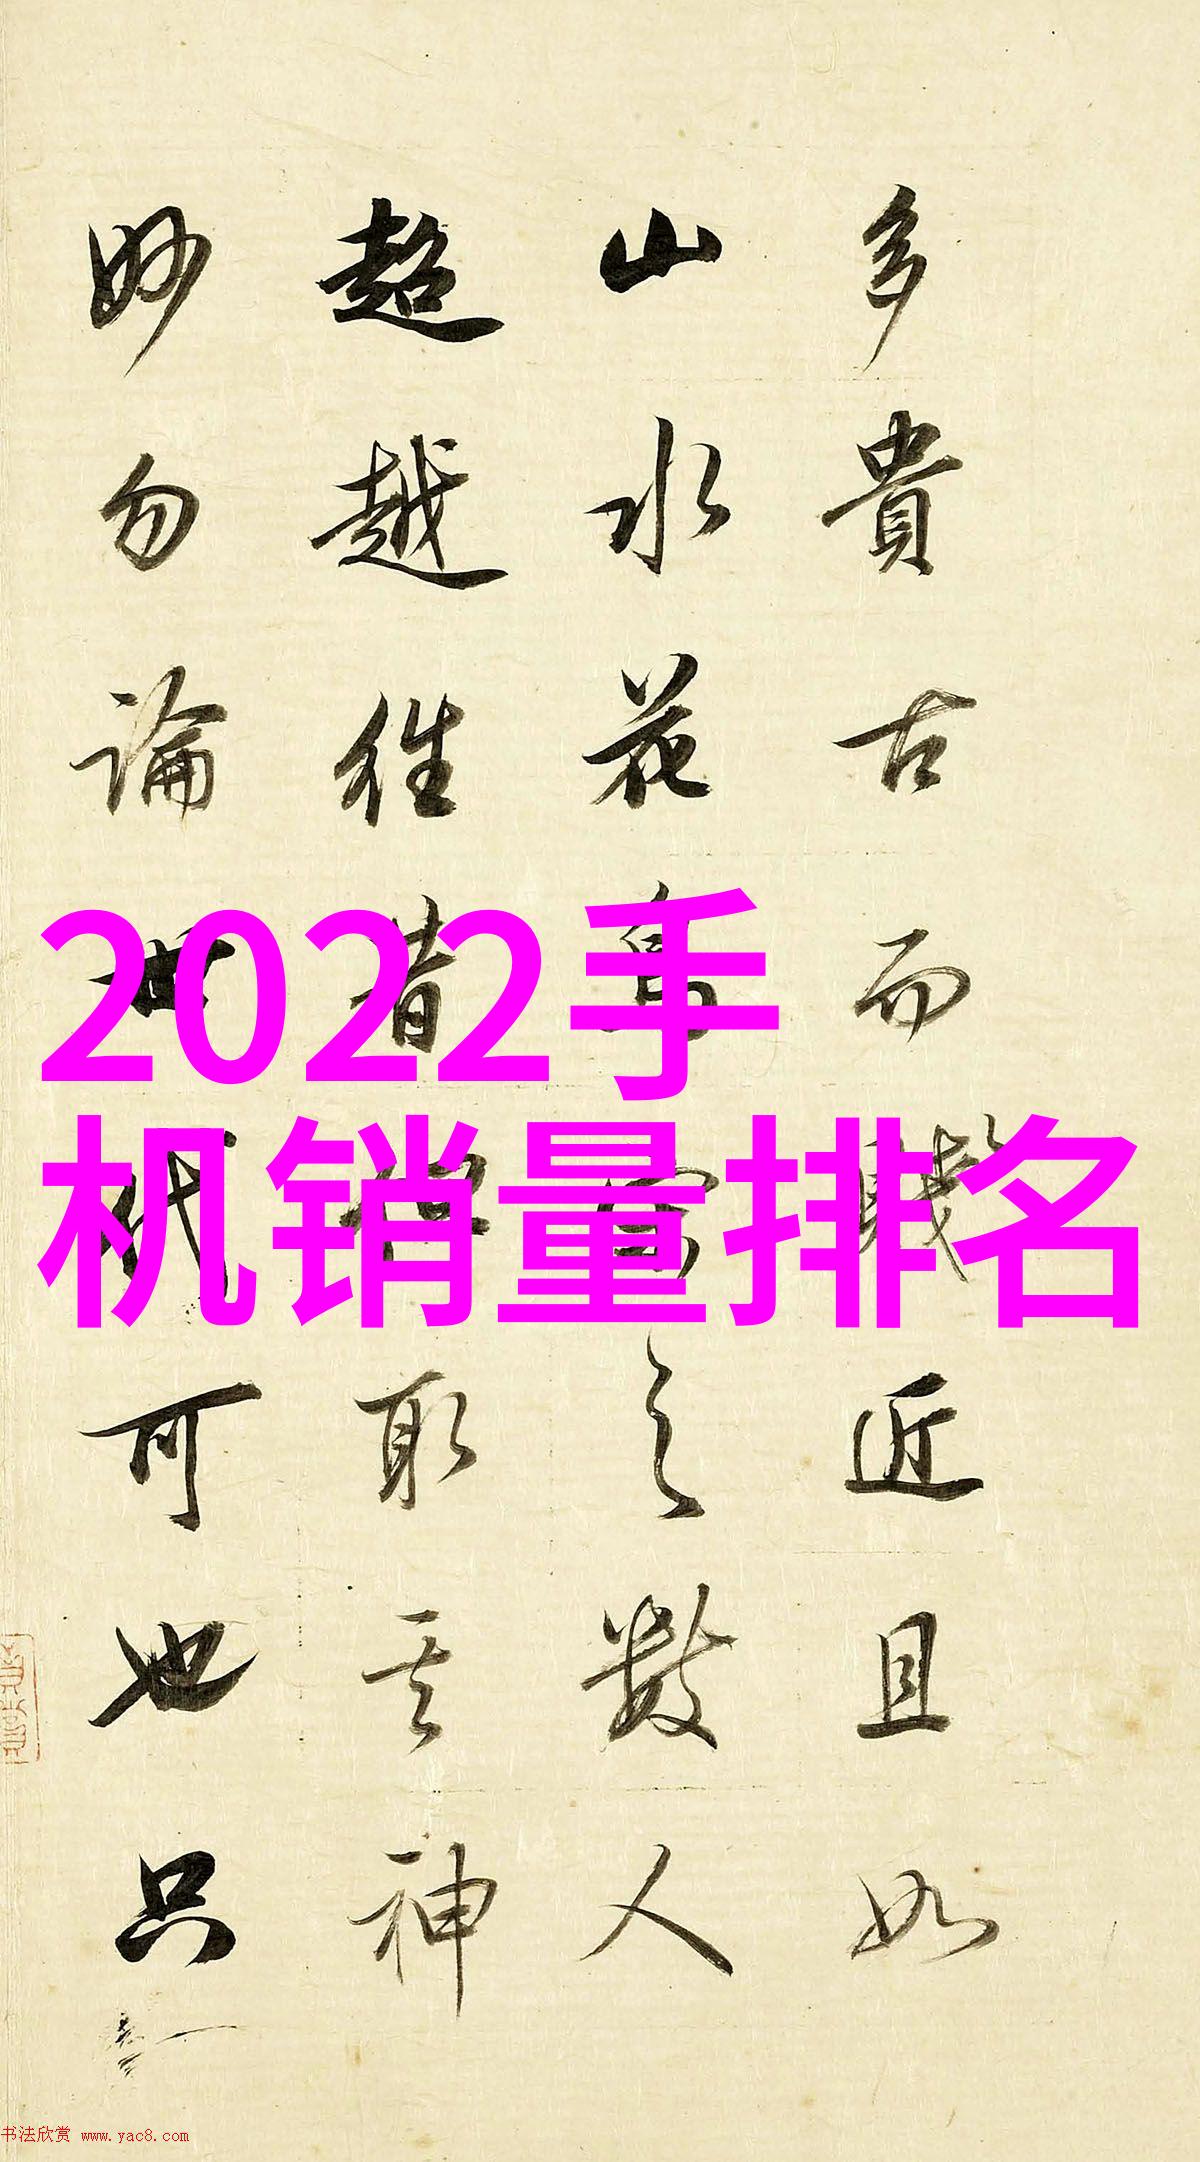 多貴古而賤近且如
山水花鳥之數人
超越往昔但取其神
妙勿論世代可也只
2022手
机销量排名
书法欣赏 www.yac8.com